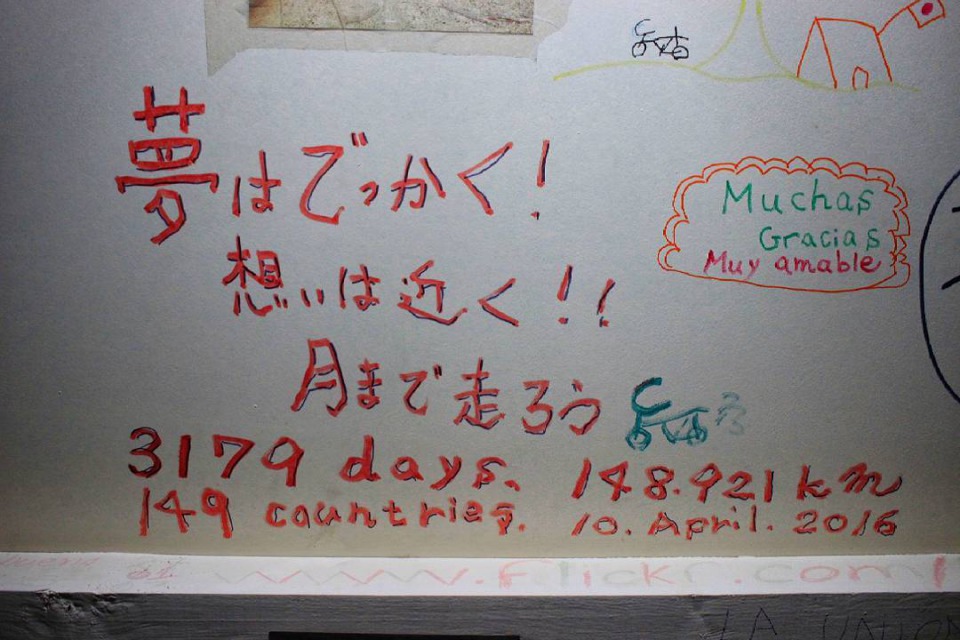 夢はでっかく!
想いは近く!!
月まで走ろう
3179 days. 148.921 km
149 countries. 10. April. 2016
Muchas
Gracias
Muy amable
www.flickr.com/
LA UNION